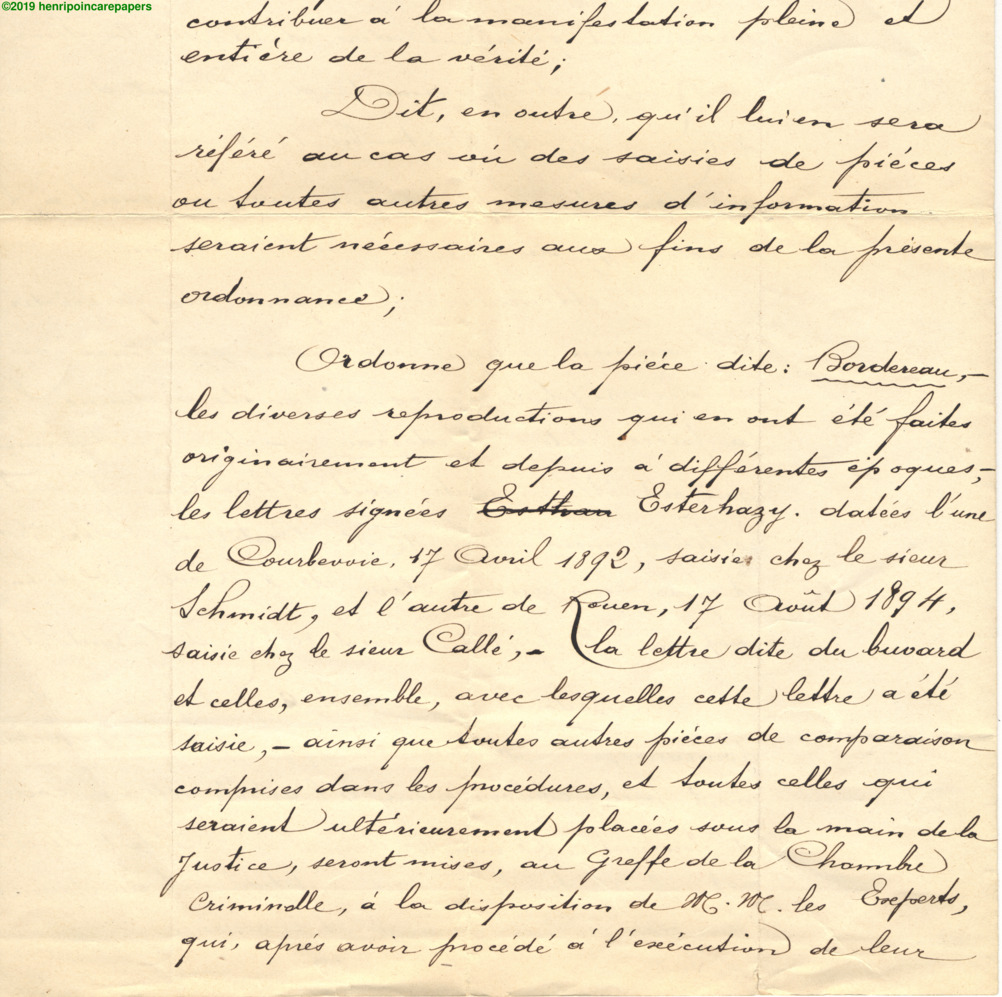 ©2019 henripoincarepapers
contribuer à la manifestation pleine et
entière de la vérité;
Dit, en outre, qu'il lui en sera
référé au cas où des saisies de pièces
ou toutes autres mesures d'information
seraient nécessaires aux fins de la présente
ordonnance;
Ordonne que la pièce dite: Bordereau, –
les diverses reproductions qui en ont été faites
originairement et depuis à différentes époques, –
les lettres signées Esthau Esterhazy. datées l'une
de Courbevoie, 17 Avril 1892, saisie chez le sieur
Schmidt, et l'autre de Rouen, 17 Août 1894,
saisie chez le sieur Callé, – la lettre dite du buvard
et celles, ensemble, avec lesquelles cette lettre a été
saisie, – ainsi que toutes autres pièces de comparaison
comprises dans les procédures, et toutes celles qui
seraient ultérieurement placées sous la main de la
Justice, seront mises, au Greffe de la Chambre
Criminelle, à la disposition de M.M. les Experts,
qui, après avoir procédé à l'exécution de leur